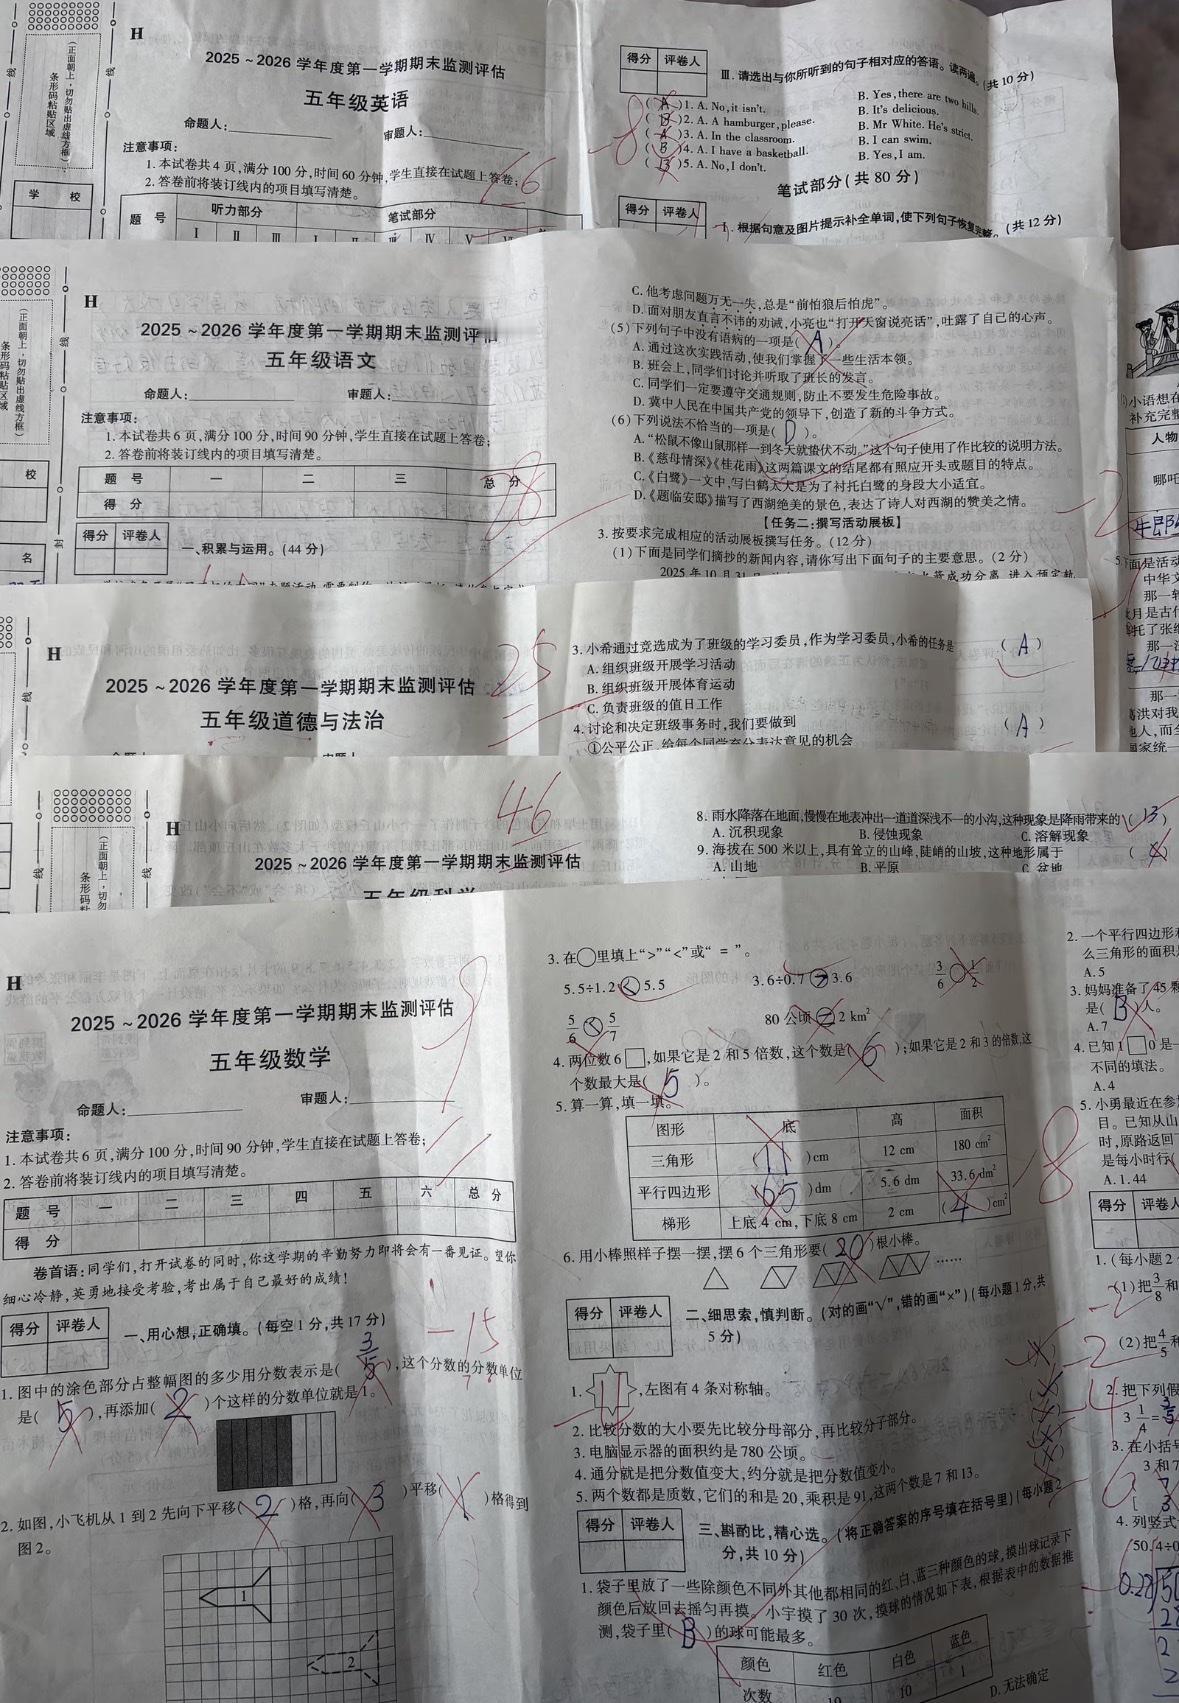 H
2025～2026 学年度第一学期期末监测评估
五年级英语
命题人:
审题人:
注意事项:
1. 本试卷共 4 页,满分 100 分,时间 60 分钟,学生直接在试题上答卷;
2. 答卷前将装订线内的项目填写清楚。
(正面朝上,切勿贴出虚线方框)
条形码粘贴区域
学 校
题 号 听力部分 笔试部分
Ⅰ Ⅱ Ⅲ Ⅰ Ⅱ Ⅲ Ⅳ Ⅴ
得分 评卷人
Ⅲ. 请选出与你所听到的句子相对应的答语。读两遍。(共 10 分)
-8
( A )1. A. No, it isn't. B. Yes, there are two hills.
( B )2. A. A hamburger, please. B. It's delicious.
( A )3. A. In the classroom. B. Mr White. He's strict.
( B )4. A. I have a basketball. B. I can swim.
( B )5. A. No, I don't. B. Yes, I am.
笔试部分(共 80 分)
得分 评卷人
Ⅰ. 根据句意及图片提示补全单词,使下列句子恢复完整。(共 12 分)
H
2025～2026 学年度第一学期期末监测评
五年级语文
命题人:
审题人:
注意事项:
1. 本试卷共 6 页,满分 100 分,时间 90 分钟,学生直接在试题上答卷;
2. 答卷前将装订线内的项目填写清楚。
(正面朝上,切勿贴出虚线方框)
条形码粘贴区域
校
名
题 号 一 二 三 总 分
得 分
得分 评卷人
一、积累与运用。(44 分)
C. 他考虑问题万无一失,总是“前怕狼后怕虎”。
D. 面对朋友直言不讳的劝诫,小亮也“打开天窗说亮话”,吐露了自己的心声。
(5)下列句子中没有语病的一项是( A )。
A. 通过这次实践活动,使我们掌握了一些生活本领。
B. 班会上,同学们讨论并听取了班长的发言。
C. 同学们一定要遵守交通规则,防止不要发生危险事故。
D. 冀中人民在中国共产党的领导下,创造了新的斗争方式。
(6)下列说法不恰当的一项是( D )。
A. “松鼠不像山鼠那样一到冬天就蛰伏不动。”这个句子使用了作比较的说明方法。
B.《慈母情深》《桂花雨》这两篇课文的结尾都有照应开头或题目的特点。
C.《白鹭》一文中,写白鹤太大是为了衬托白鹭的身段大小适宜。
D.《题临安邸》描写了西湖绝美的景色,表达了诗人对西湖的赞美之情。
【任务二:撰写活动展板】
3. 按要求完成相应的活动展板撰写任务。(12 分)
(1)下面是同学们摘抄的新闻内容,请你写出下面句子的主要意思。(2 分)
小语想在
补充完整
人物
哪吒
-2
下面是活动
中华文
H
2025～2026 学年度第一学期期末监测评估
五年级道德与法治
25
3. 小希通过竞选成为了班级的学习委员,作为学习委员,小希的任务是 ( A )
A. 组织班级开展学习活动
B. 组织班级开展体育运动
C. 负责班级的值日工作
4. 讨论和决定班级事务时,我们要做到 ( A )
①公平公正,给每个同学充分表达意见的机会
H
46
2025～2026 学年度第一学期期末监测评估
五年级科学
8. 雨水降落在地面,慢慢在地表冲出一道道深浅不一的小沟,这种现象是降雨带来的( B )
A. 沉积现象 B. 侵蚀现象 C. 溶解现象
9. 海拔在 500 米以上,具有耸立的山峰,陡峭的山坡,这种地形属于
A. 山地 B. 平原 C. 盆地
H
2025～2026 学年度第一学期期末监测评估
五年级数学
命题人:
审题人:
注意事项:
1. 本试卷共 6 页,满分 100 分,时间 90 分钟,学生直接在试题上答卷;
2. 答卷前将装订线内的项目填写清楚。
题 号 一 二 三 四 五 六 总 分
得 分
卷首语:同学们,打开试卷的同时,你这学期的辛勤努力即将会有一番见证。望你
细心冷静,英勇地接受考验,考出属于自己最好的成绩!
得分 评卷人
一、用心想,正确填。(每空 1 分,共 17 分)
-15
1. 图中的涂色部分占整幅图的多少用分数表示是( 3/5 ),这个分数的分数单位
是( 5 ),再添加( 2 )个这样的分数单位就是 1。
2. 如图,小飞机从 1 到 2 先向下平移( 2 )格,再向( 3 )平移( )格得到
图 2。
1
2
3. 在○里填上“>”“<”或“=”。
5.5÷1.2 < 5.5 3.6÷0.7 3.6 3/6 ○ 1/2
5/6 5/7 80 公顷 2 km²
4. 两位数 6□,如果它是 2 和 5 倍数,这个数是( 6 );如果它是 2 和 3 的倍数,这
个数最大是( 5 )。
5. 算一算,填一填。
图形 底 高 面积
三角形 ( 11 )cm 12 cm 180 cm²
平行四边形 ( 65 )dm 5.6 dm 33.6 dm²
梯形 上底 4 cm,下底 8 cm 2 cm ( 4 )cm²
-8
6. 用小棒照样子摆一摆,摆 6 个三角形要( 20 )根小棒。
……
得分 评卷人
二、细思索,慎判断。(对的画“√”,错的画“×”)(每小题 1 分,共
5 分)
1. ,左图有 4 条对称轴。
2. 比较分数的大小要先比较分母部分,再比较分子部分。
3. 电脑显示器的面积约是 780 公顷。
4. 通分就是把分数值变大,约分就是把分数值变小。
5. 两个数都是质数,它们的和是 20,乘积是 91,这两个数是 7 和 13。
得分 评卷人
三、斟酌比,精心选。(将正确答案的序号填在括号里)(每小题 2
分,共 10 分)
1. 袋子里放了一些除颜色不同外其他都相同的红、白、蓝三种颜色的球,摸出球记录下
颜色后放回去摇匀再摸。小宇摸了 30 次,摸球的情况如下表,根据表中的数据推
测,袋子里( B )的球可能最多。
颜色 红色 白色 蓝色
次数 19 10 1
D. 无法确定
2. 一个平行四边形和
么三角形的面积是
A. 5
3. 妈妈准备了 45 颗
是( B )人。
A. 7
4. 已知 1□0 是一
不同的填法。
A. 4
5. 小勇最近在参
目。已知从山
时,原路返回
是每小时行(
A. 1.44
得分 评卷人
1. (每小题 2
(1)把 3/8 和
-2
(2)把 4/5 和
2. 把下列假
3 1/4 =
3. 在小括号
3 和 7
4. 列竖式
50.4÷0